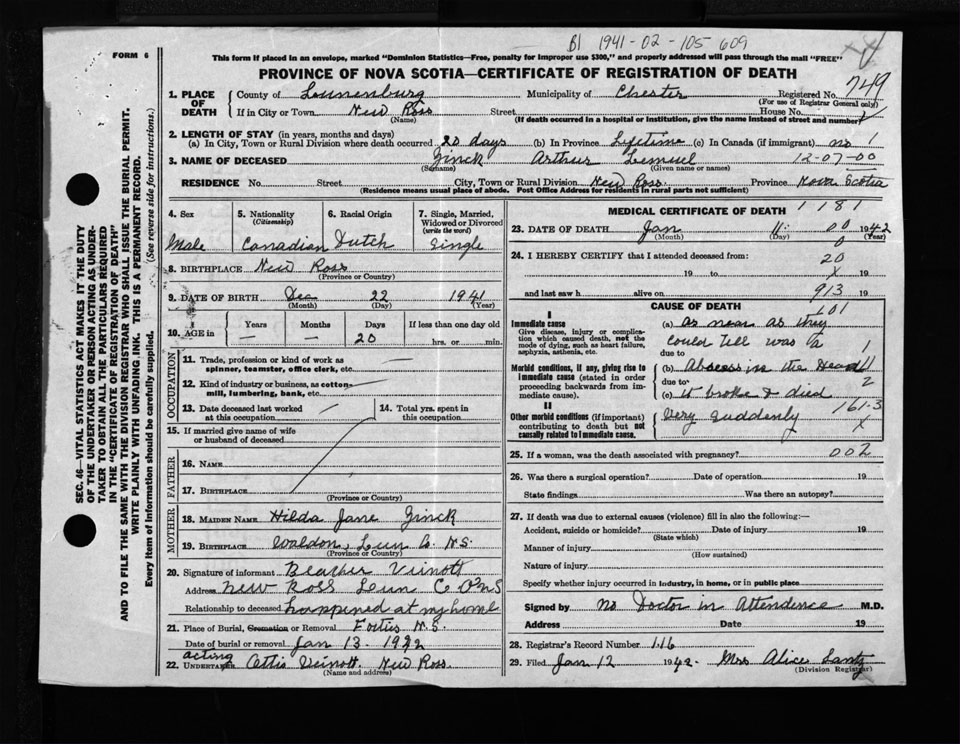 B1 1941-02-105 609
FORM 6
This form if placed in an envelope, marked "Dominion Statistics—Free, penalty for improper use $300," and properly addressed will pass through the mail "FREE"
PROVINCE OF NOVA SCOTIA—CERTIFICATE OF REGISTRATION OF DEATH
749
1. PLACE OF DEATH
County of Lunenburg Municipality of Chester Registered No.
(For use of Registrar General only)
If in City or Town New Ross Street House No.
(Name) (If death occurred in a hospital or institution, give the name instead of street and number)
2. LENGTH OF STAY (in years, months and days)
(a) In City, Town or Rural Division where death occurred 20 days (b) In Province Lifetime (c) In Canada (if immigrant) no 1
3. NAME OF DECEASED Zinck Arthur Lemuel 12-07-00
(Surname) (Given name or names)
RESIDENCE No. Street City, Town or Rural Division New Ross Province Nova Scotia
(Residence means usual place of abode. Post Office Address for residents in rural parts not sufficient)
4. Sex
Male
5. Nationality
(Citizenship)
Canadian
6. Racial Origin
Dutch
7. Single, Married, Widowed or Divorced
(write the word)
Single
8. BIRTHPLACE New Ross
(Province or Country)
9. DATE OF BIRTH Dec 22 1941
(Month) (Day) (Year)
10. AGE in Years Months Days If less than one day old
— — 20 hrs. or min.
OCCUPATION
11. Trade, profession or kind of work as spinner, teamster, office clerk, etc.
12. Kind of industry or business, as cotton-mill, lumbering, bank, etc.
13. Date deceased last worked at this occupation
14. Total yrs. spent in this occupation
15. If married give name of wife or husband of deceased
FATHER
16. NAME
17. BIRTHPLACE
(Province or Country)
MOTHER
18. MAIDEN NAME Hilda Jane Zinck
19. BIRTHPLACE Waldon, Lun Co. N.S.
(Province or Country)
20. Signature of informant Veinott
Address New Ross Lun Co NS
Relationship to deceased happened at my home
21. Place of Burial, Cremation or Removal N.S.
Date of burial or removal Jan 13 1942
acting
22. UNDERTAKER Veinott, New Ross.
(Name and address)
MEDICAL CERTIFICATE OF DEATH 1181
23. DATE OF DEATH Jan 11 00 1942
(Month) (Day) (Year)
0
24. I HEREBY CERTIFY that I attended deceased from:
20
19 to X 19
and last saw h alive on 913 19
CAUSE OF DEATH 101
I
Immediate cause
Give disease, injury or complication which caused death, not the mode of dying, such as heart failure, asphyxia, asthenia, etc.
(a) as near as they
could tell was a 1
due to
Morbid conditions, if any, giving rise to immediate cause (stated in order proceeding backwards from immediate cause)
(b) Abscess in the Head
due to 2
(c) it broke & died
II
Other morbid conditions (if important) contributing to death but not causally related to immediate cause.
161-3
very suddenly X
25. If a woman, was the death associated with pregnancy? 002
26. Was there a surgical operation? Date of operation 19
State findings Was there an autopsy?
27. If death was due to external causes (violence) fill in also the following:—
Accident, suicide or homicide? Date of injury 19
(State which)
Manner of injury
(How sustained)
Nature of injury
Specify whether injury occurred in industry, in home, or in public place
Signed by No Doctor in Attendence M.D.
Address Date 19
28. Registrar's Record Number 116
29. Filed Jan 12 1942. Mrs Alice Lantz
(Division Registrar)
SEC. 46—VITAL STATISTICS ACT MAKES IT THE DUTY
OF THE UNDERTAKER OR PERSON ACTING AS UNDER-
TAKER TO OBTAIN ALL THE PARTICULARS REQUIRED
IN THE "CERTIFICATE OF REGISTRATION OF DEATH"
AND TO FILE THE SAME WITH THE DIVISION REGISTRAR WHO SHALL ISSUE THE BURIAL PERMIT.
WRITE PLAINLY WITH UNFADING INK. THIS IS A PERMANENT RECORD.
Every item of information should be carefully supplied. (See reverse side for instructions.)